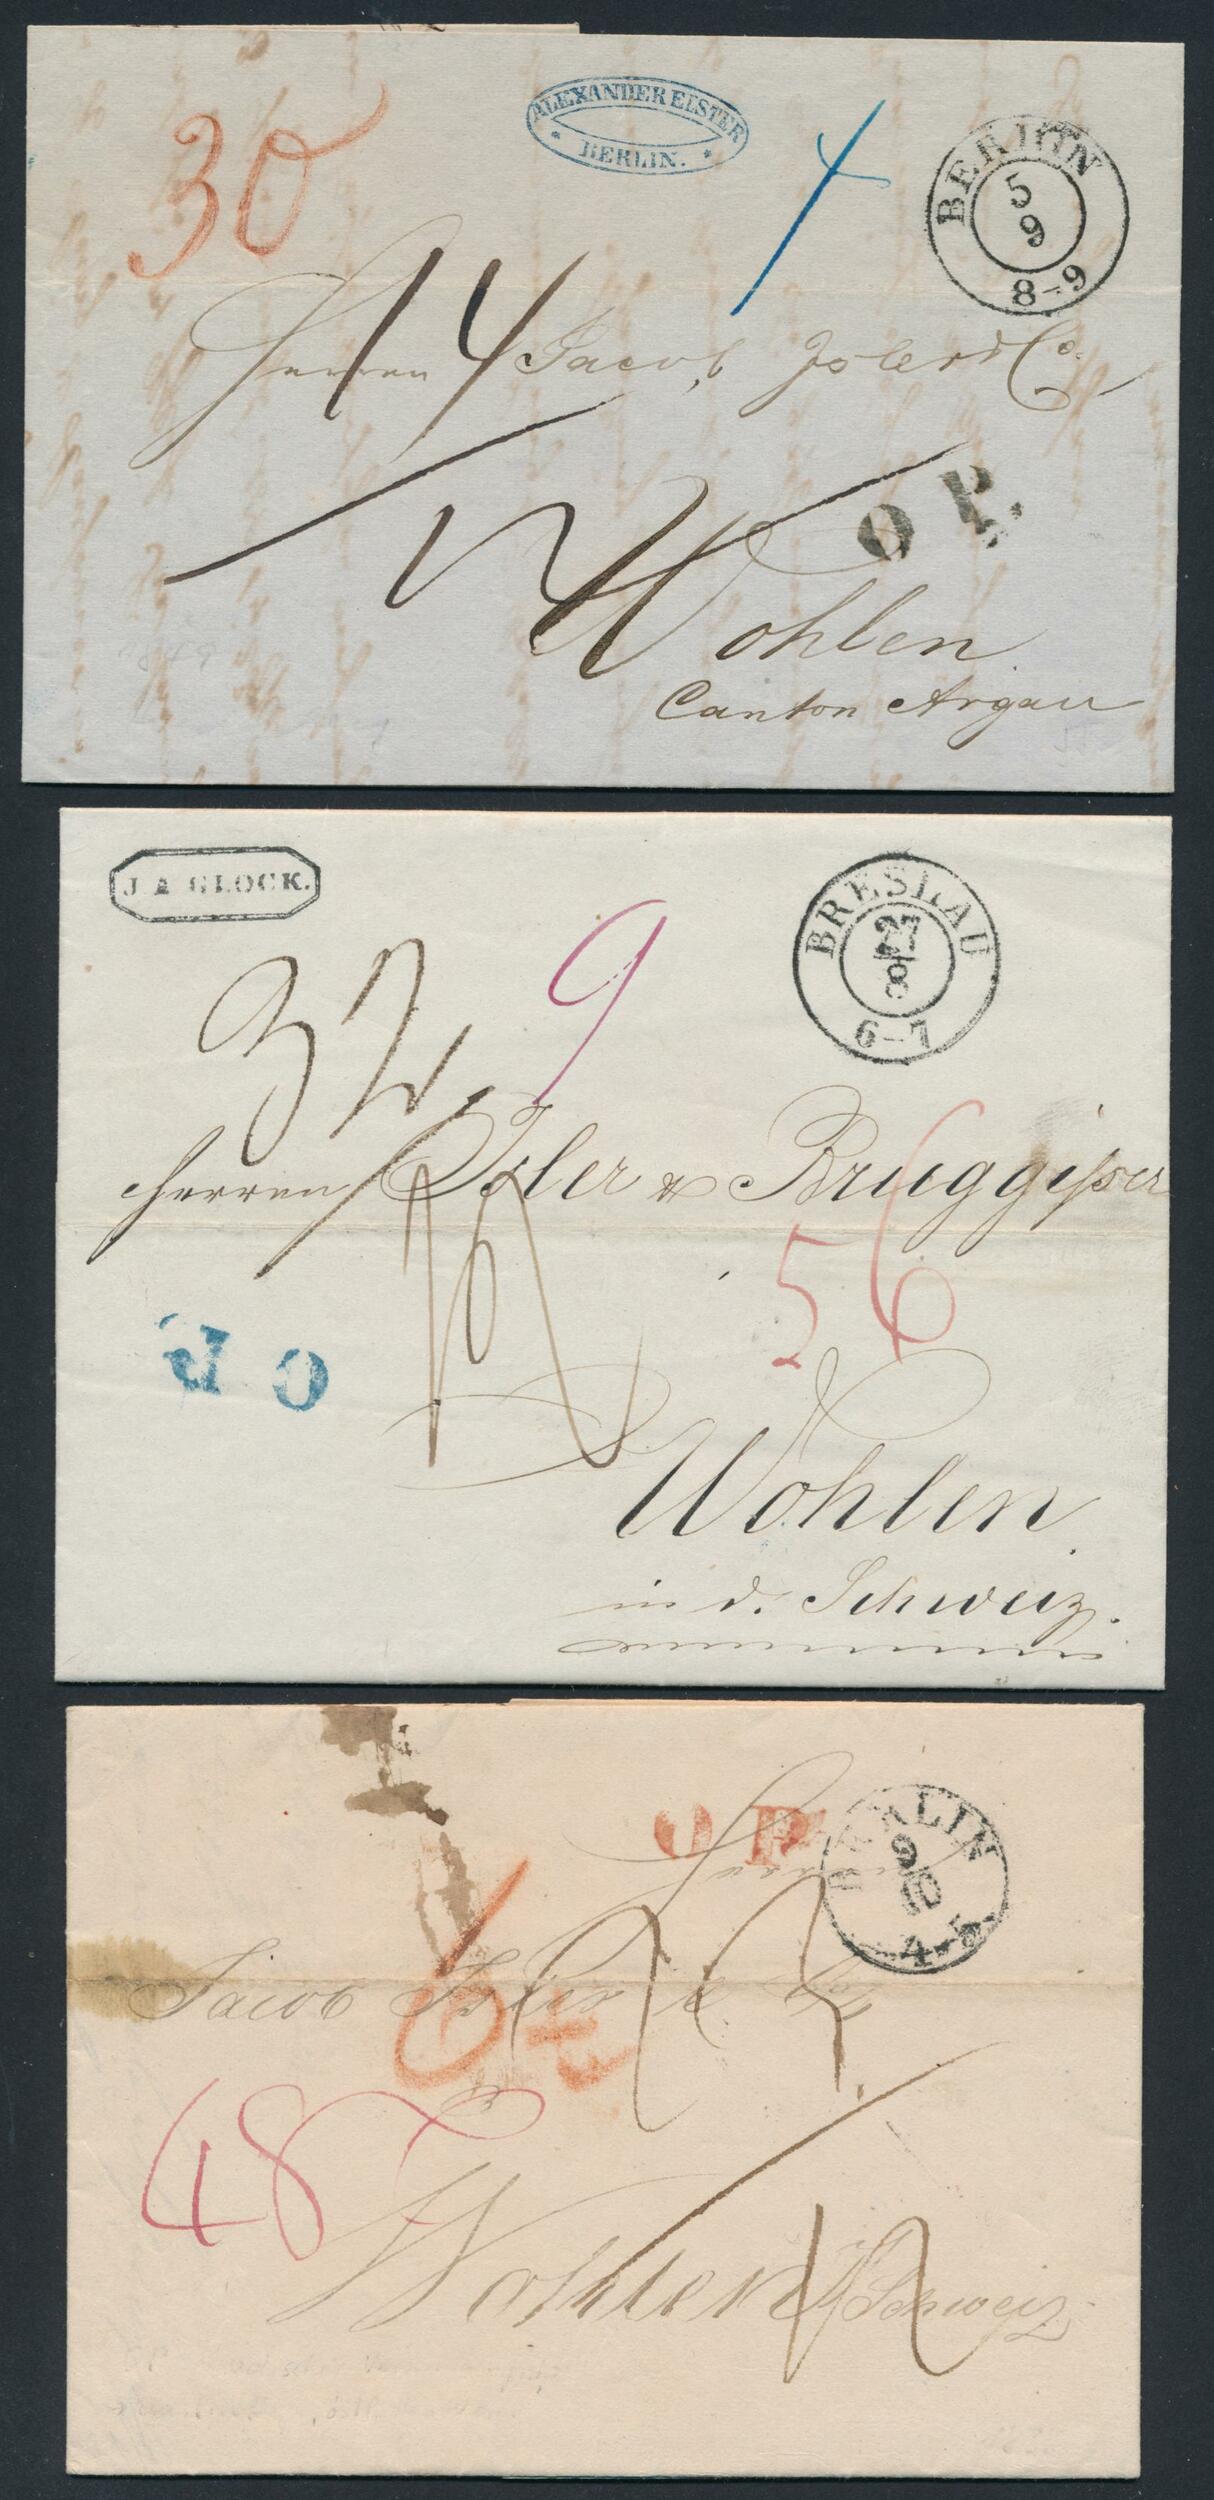 ALEXANDER ELSTER
BERLIN.
30
4
BERLIN
5
9
8-9
14
Herren Jacob Isler & Co.
O P.
Wohlen
Canton Argau
J. A. GLOCK.
BRESLAU
27
8
6-7
32
9
Herren Isler & Bruggisser
56
O P.
Wohlen
in d. Schweiz.
O P.
BERLIN
9
10
4-5
Herren
Jacob Isler & Co
6
48
Wohlen
Schweiz